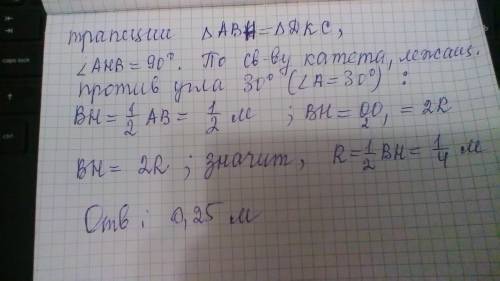 трапеции △ABH=△DKC,
∠AHB = 90°. По св-ву катета, лежащ.
против угла 30° (∠A = 30°) :
BH = 1/2 AB = 1/2 м ; BH = OO₂, = 2R
BH = 2R ; значит, R = 1/2 BH = 1/4 м
Отв: 0,25 м